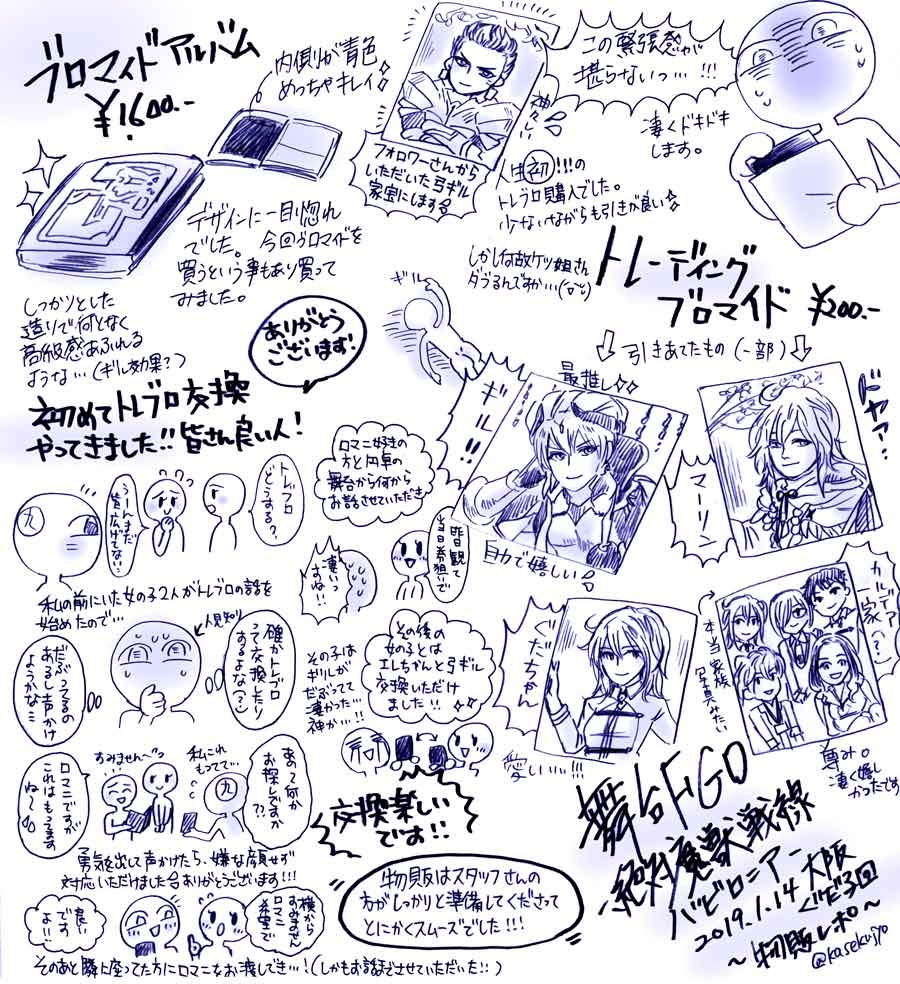 ブロマイドアルバム
¥1,600.-
内側が青色
めっちゃキレイ
デザインに一目惚れ
でした。今回ブロマイドを
買うという事もあり買って
みました。
しっかりとした
造りで何となく
高級感あふれる
ような…(ギル効果?)
神々しい
フォロワーさんから
いただいた弓ギル
家宝にします
この緊張感が
堪らないっ…!!!
凄くドキドキ
します。
人生初!!!の
トレブロ購入でした。
少ないながらも引きが良い
しかし何故ケツ姐さん
ダブるんですが…
トレーディング
ブロマイド ¥200.-
↓引きあてたもの(一部)↓
最推し
ギル!!
自力で嬉しい
ドヤァ?
マーリン
ぐだちゃん
愛しい!!!
カルデア
一家(?)
本当家族
写真みたい
尊み。
凄く嬉し
かったです
ギル
ありがとう
ございます!
初めてトレブロ交換
やってきました!!皆さん良い人!
九
うーんまだ
皆広げてない
トレブロ
どうする?
私の前にいた女の子2人がトレブロの話を
始めたので…
だぶってるの
あるし声かけ
ようかな…
人見知り
確かトレブロ
って交換したり
するよな(?)
ロマニ好きの
方と円卓の
舞台から何から
お話させていただき
凄いっ
すね!!
昨日観て
当日券狙いで
その子は
ギルしか
だぶってて
凄かった…
神か…!!
その後の
女の子とは
エレちゃんと弓ギル
交換いただけ
ました!!
交換楽しい
です!!
ロマニですが
これはもってます
ね〜
すみません〜っ
私これ
もってて…
九
あっ何か
お探しですか
??
勇気を出して声かけたら、嫌な顔せず
対応いただけましたありがとうございます!!!
良い
ですよ…
横から
すみません
ロマニ
希望で
そのあと隣に座ってた方にロマニをお渡しでき…!(しかもお話までさせていただいた::)
物販はスタッフさんの
方がしっかりと準備してくださって
とにかくスムーズでした!!!
舞台FGO
絶対魔獣戦線
バビロニア
2019.1.14 大阪
〜物販レポ〜
@kasekujyo